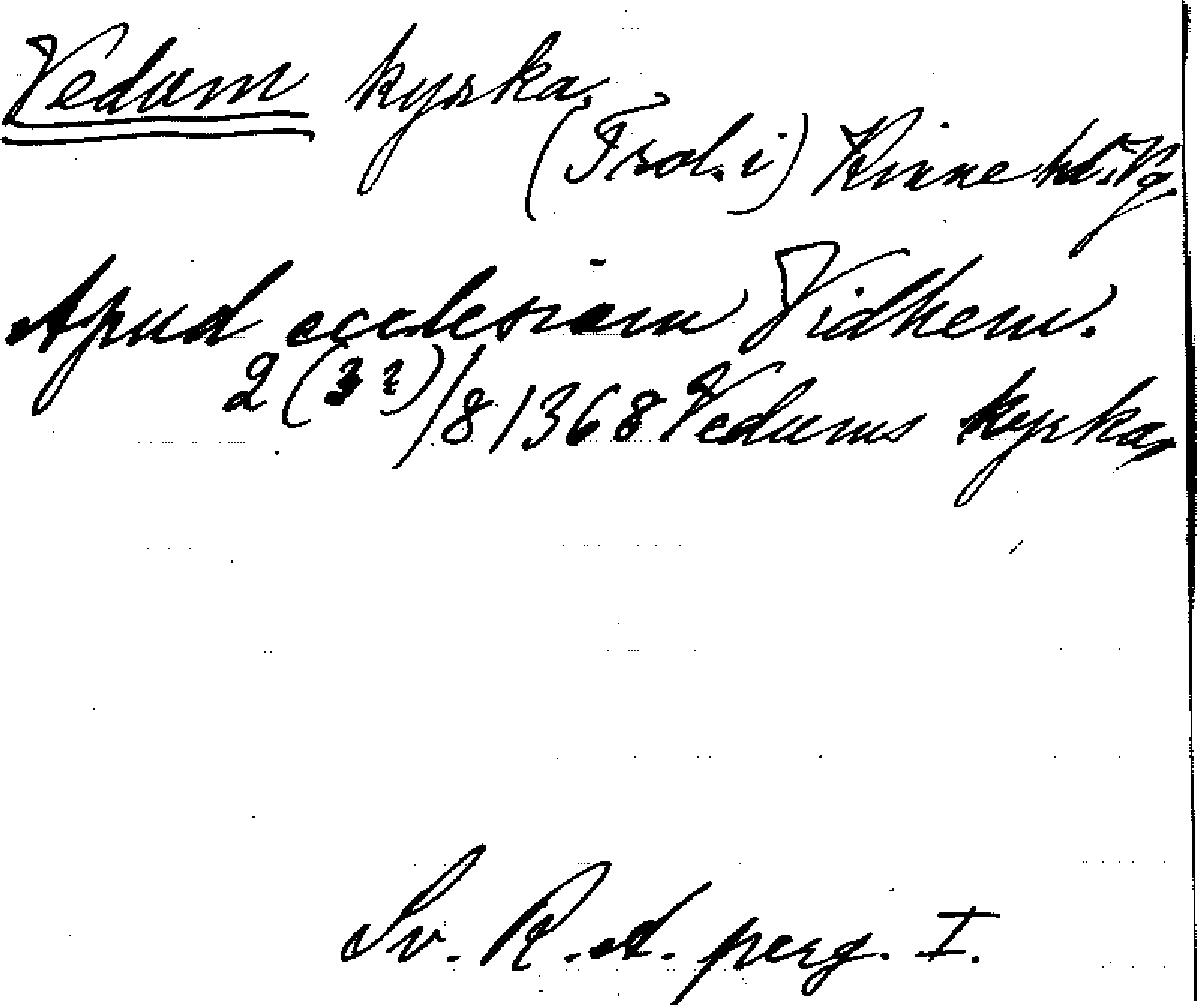 Vedum kyrka,
(Trol. i) Kinne hd. Vg.
Apud ecclesiam Vidhem.
2 (3?)/8 1368 Vedums kyrka,
Sv. R.A. perg. I.